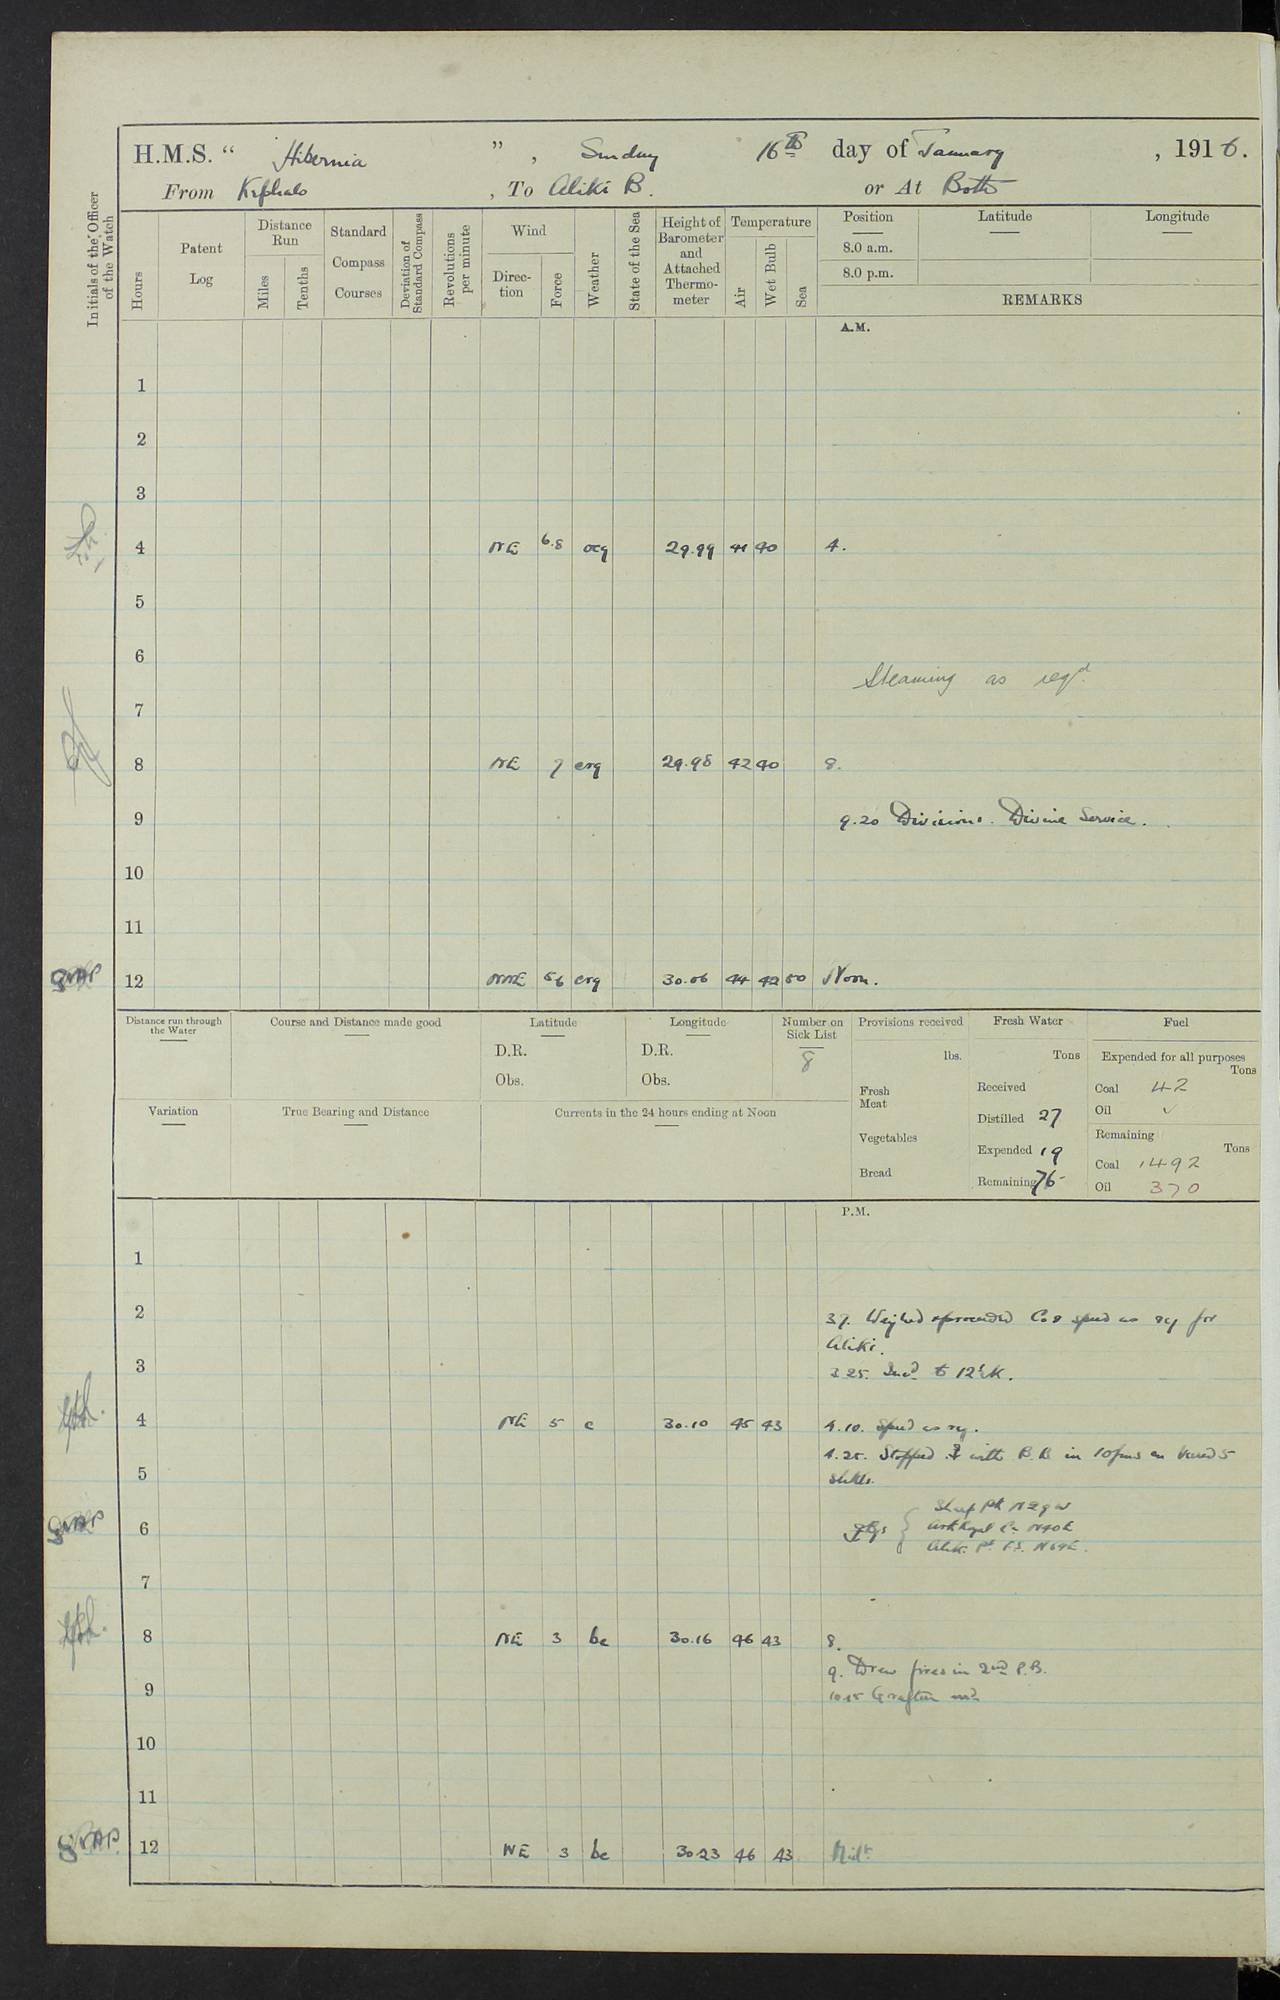 H.M.S. “ Hibernia ” , Sunday 16th day of January , 1916.
From Kephalo , To Aliki B. or At Both
Initials of the Officer of the Watch
Hours
Patent Log
Distance Run
Miles
Tenths
Standard Compass Courses
Deviation of Standard Compass
Revolutions per minute
Wind
Direction
Force
Weather
State of the Sea
Height of Barometer and Attached Thermometer
Temperature
Air
Wet Bulb
Sea
Position Latitude Longitude
8.0 a.m.
8.0 p.m.
REMARKS
A.M.
1
2
3
4 NE 6.8 ocq 29.99 41 40 4.
5
6
Steaming as reqd.
7
8 NE 7 crq 29.98 42 40 8.
9 9.20 Divisions. Divine Service.
10
11
12 NNE 5.6 crq 30.06 44 42 50 Noon.
Distance run through the Water
Course and Distance made good
Latitude
D.R.
Obs.
Longitude
D.R.
Obs.
Number on Sick List
8
Provisions received
lbs.
Fresh Meat
Vegetables
Bread
Fresh Water
Tons
Received
Distilled 27
Expended 19
Remaining 76
Fuel
Expended for all purposes
Tons
Coal 42
Oil ✓
Remaining
Tons
Coal 1492
Oil 370
Variation
True Bearing and Distance
Currents in the 24 hours ending at Noon
P.M.
1
2 Weighed & proceeded Co & speed as req for
Aliki.
3 3.25. Incd to 12 K.
4 NE 5 c 30.10 45 43 4.10. Speed as req.
4.25. Stopped & with B.B. in 10 fms on veered 5
5 shkls.
Sheep Pt N29W
6 Ark Royal N40E
Aliki Pt N69E.
7
8 NE 3 bc 30.16 46 43 8.
9. Drew fires in 2nd P.B.
9 10.15 Grafton
10
11
12 NE 3 bc 30.23 46 43 Midt